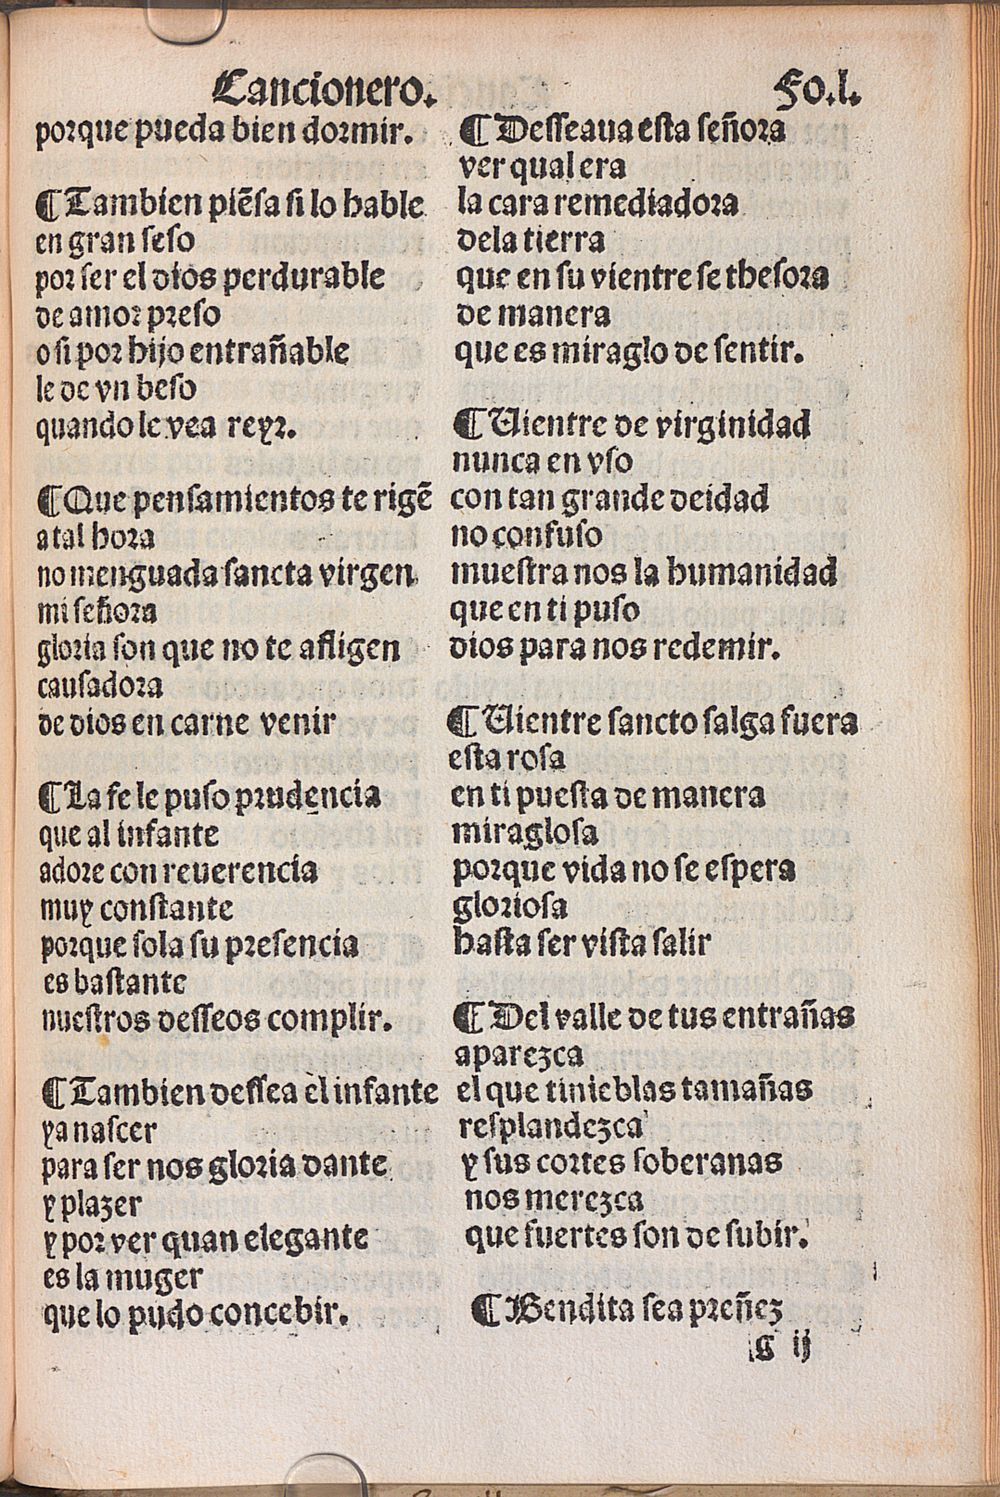 Cancionero. Fo.l.
porque pueda bien dormir.

¶ Tambien piẽsa si lo hable
en gran seso
por ser el dios perdurable
de amor preso
o si por hijo entrañable
le de vn beso
quando le vea reyr.

¶ Que pensamientos te rigẽ
a tal hora
no menguada sancta virgen
mi señora
gloria son que no te afligen
causadora
de dios en carne venir

¶ La fe le puso prudencia
que al infante
adore con reuerencia
muy constante
porque sola su presencia
es bastante
nuestros desseos complir.

¶ Tambien dessea el infante
ya nascer
para ser nos gloria dante
y plazer
y por ver quan elegante
es la muger
que lo pudo concebir.

¶ Desseaua esta señora
ver qual era
la cara remediadora
dela tierra
que en su vientre se thesora
de manera
que es miraglo de sentir.

¶ Uientre de virginidad
nunca en vso
con tan grande deidad
no confuso
muestra nos la humanidad
que en ti puso
dios para nos redemir.

¶ Uientre sancto salga fuera
esta rosa
en ti puesta de manera
miraglosa
porque vida no se espera
gloriosa
hasta ser vista salir

¶ Del valle de tus entrañas
aparezca
el que tinieblas tamañas
resplandezca
y sus cortes soberanas
nos merezca
que fuertes son de subir.

¶ Bendita sea preñez
G ij